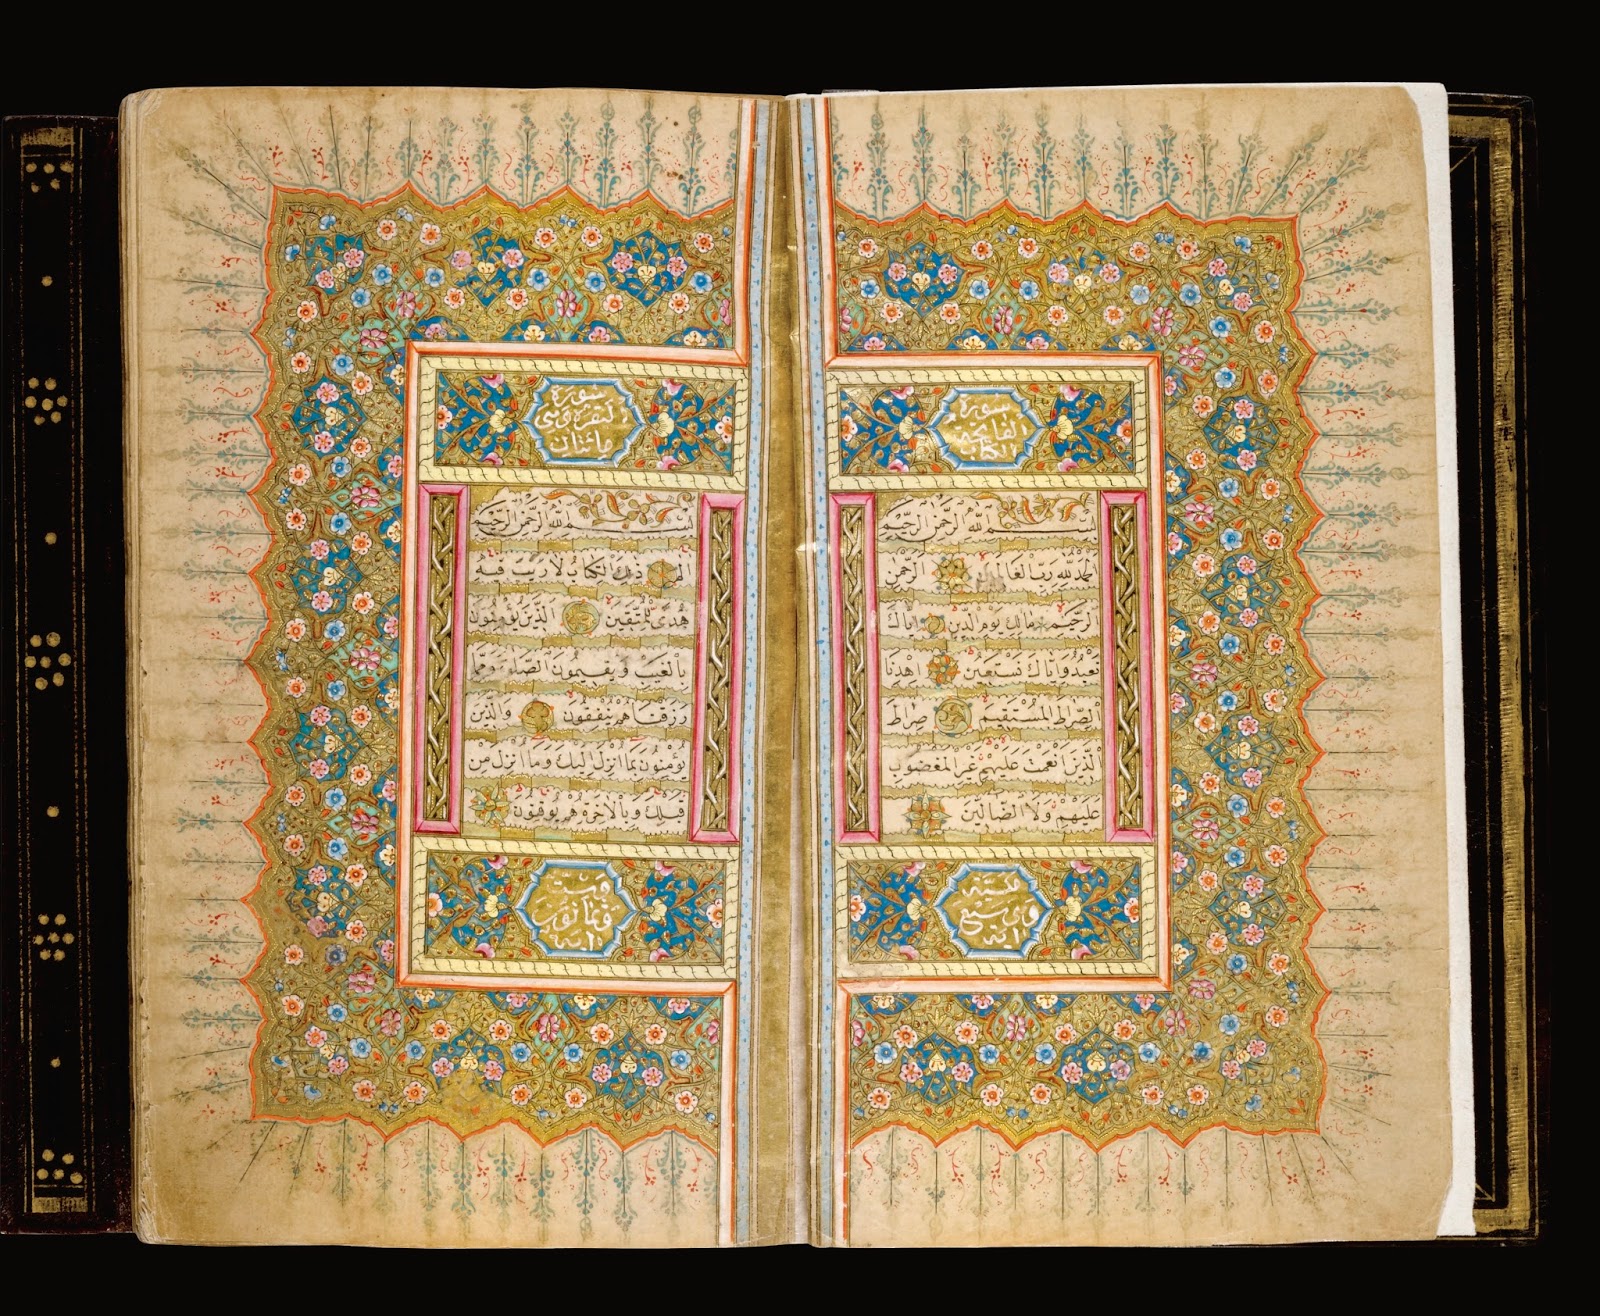 سورة
الفاتحة
الكتاب
بِسْمِ اللّٰهِ الرَّحْمٰنِ الرَّحِيمِ
اَلْحَمْدُ لِلّٰهِ رَبِّ الْعَالَمِينَ الرَّحْمٰنِ
الرَّحِيمِ مَالِكِ يَوْمِ الدِّينِ اِيَّاكَ
نَعْبُدُ وَاِيَّاكَ نَسْتَعِينُ اِهْدِنَا
الصِّرَاطَ الْمُسْتَقِيمَ صِرَاطَ
الَّذِينَ اَنْعَمْتَ عَلَيْهِمْ غَيْرِ الْمَغْضُوبِ
عَلَيْهِمْ وَلَا الضَّالِّينَ
مكية
وهي سبع
اية
سورة
البقرة وهي
مائتان
بِسْمِ اللّٰهِ الرَّحْمٰنِ الرَّحِيمِ
الم ذٰلِكَ الْكِتَابُ لَا رَيْبَ فِيهِ
هُدًى لِلْمُتَّقِينَ الَّذِينَ يُؤْمِنُونَ
بِالْغَيْبِ وَيُقِيمُونَ الصَّلٰوةَ وَمِمَّا
رَزَقْنَاهُمْ يُنْفِقُونَ وَالَّذِينَ
يُؤْمِنُونَ بِمَا اُنْزِلَ اِلَيْكَ وَمَا اُنْزِلَ مِنْ
قَبْلِكَ وَبِالْاٰخِرَةِ هُمْ يُوقِنُونَ
وست
وثمانون
اية